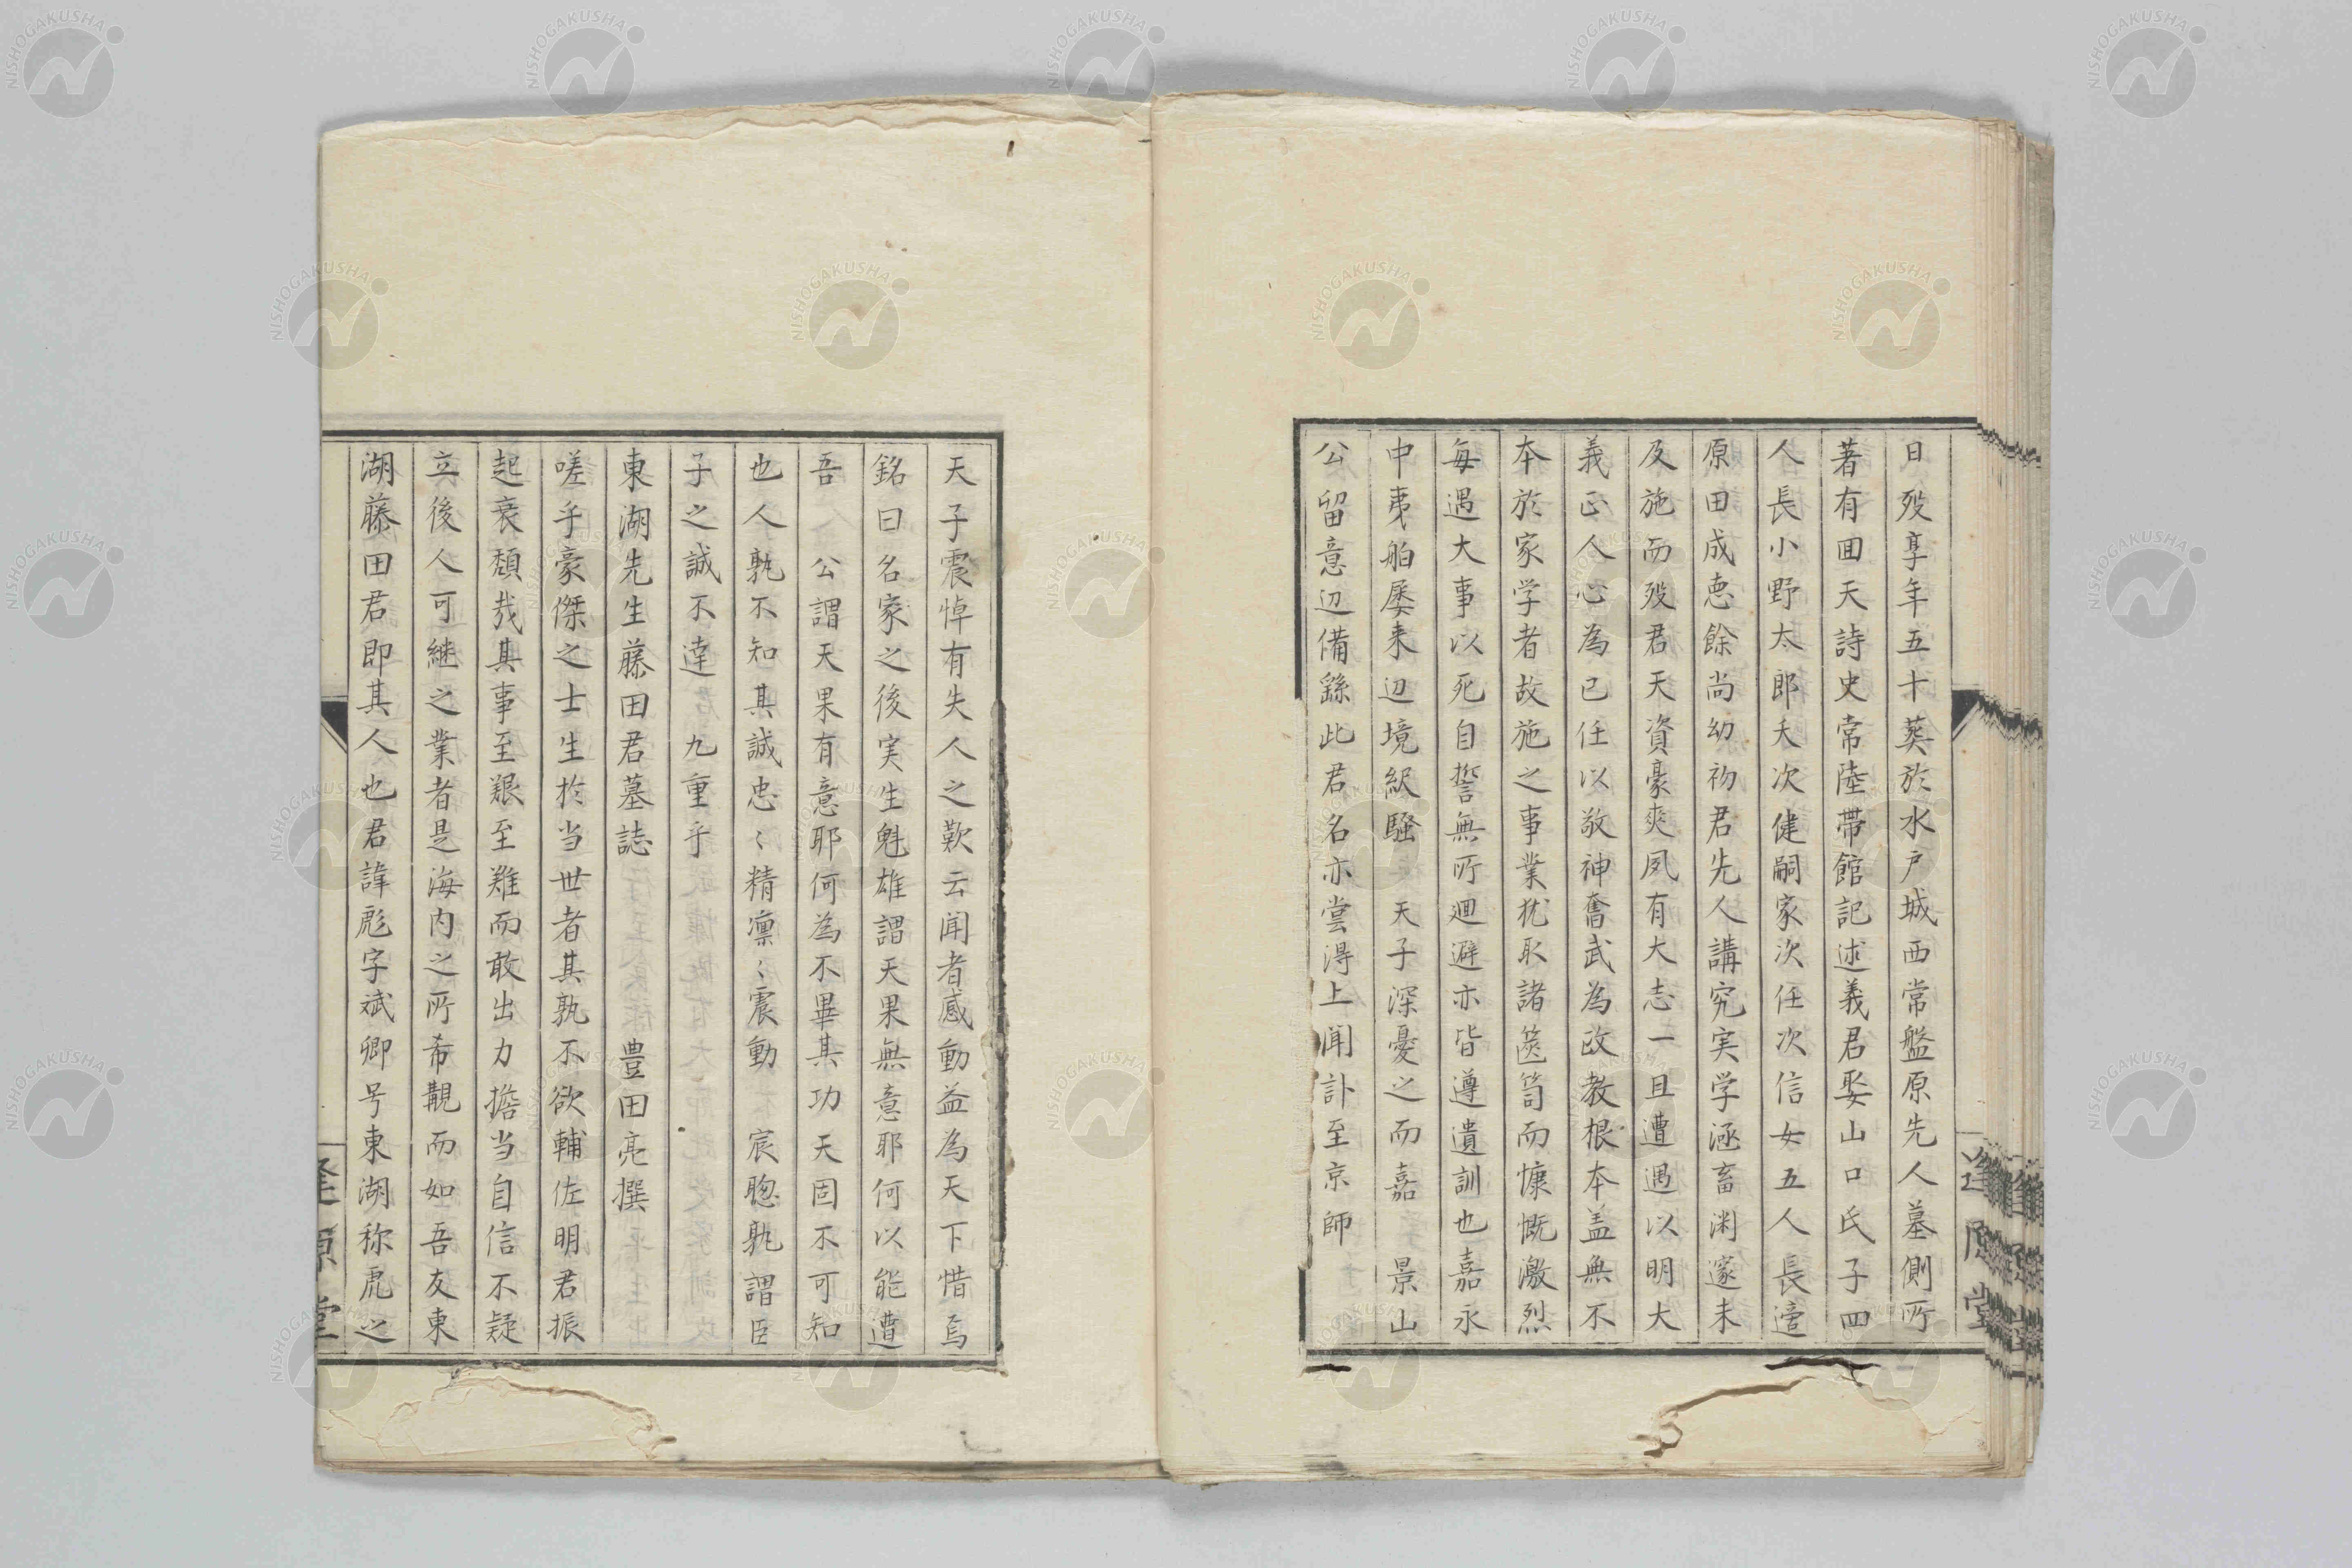 日歿享年五十葬於水戸城西常盤原先人墓側所
著有回天詩史常陸帯館記述義君娶山口氏子四
人長小野太郎夭次健嗣家次任次信女五人長適
原田成悳餘尚幼初君先人講究実学涵畜渊邃未
及施而歿君天資豪爽夙有大志一旦遭遇以明大
義正人心為己任以敬神奮武為政教根本盖無不
本於家学者故施之事業犹取諸篋笥而慷慨激烈
毎遇大事以死自誓無所廻避亦皆遵遺訓也嘉永
中夷舶屡来辺境繹騒 天子深憂之而嘉 景山
公留意辺備繇此君名亦嘗得上聞訃至京師
逢原堂
天子震悼有失人之歎云聞者感動益為天下惜焉
銘曰名家之後実生魁雄謂天果無意耶何以能遭
吾 公謂天果有意耶何為不畢其功天固不可知
也人孰不知其誠忠〻精凛〻震動 宸聰孰謂臣
子之誠不達 九重乎
東湖先生藤田君墓誌 豊田亮撰
嗟乎豪傑之士生於当世者其孰不欲輔佐明君振
起衰頽哉其事至艱至難而敢出力擔当自信不疑
立後人可継之業者是海内之所希覯而如吾友東
湖藤田君即其人也君諱彪字斌卿号東湖称虎之
逢原堂